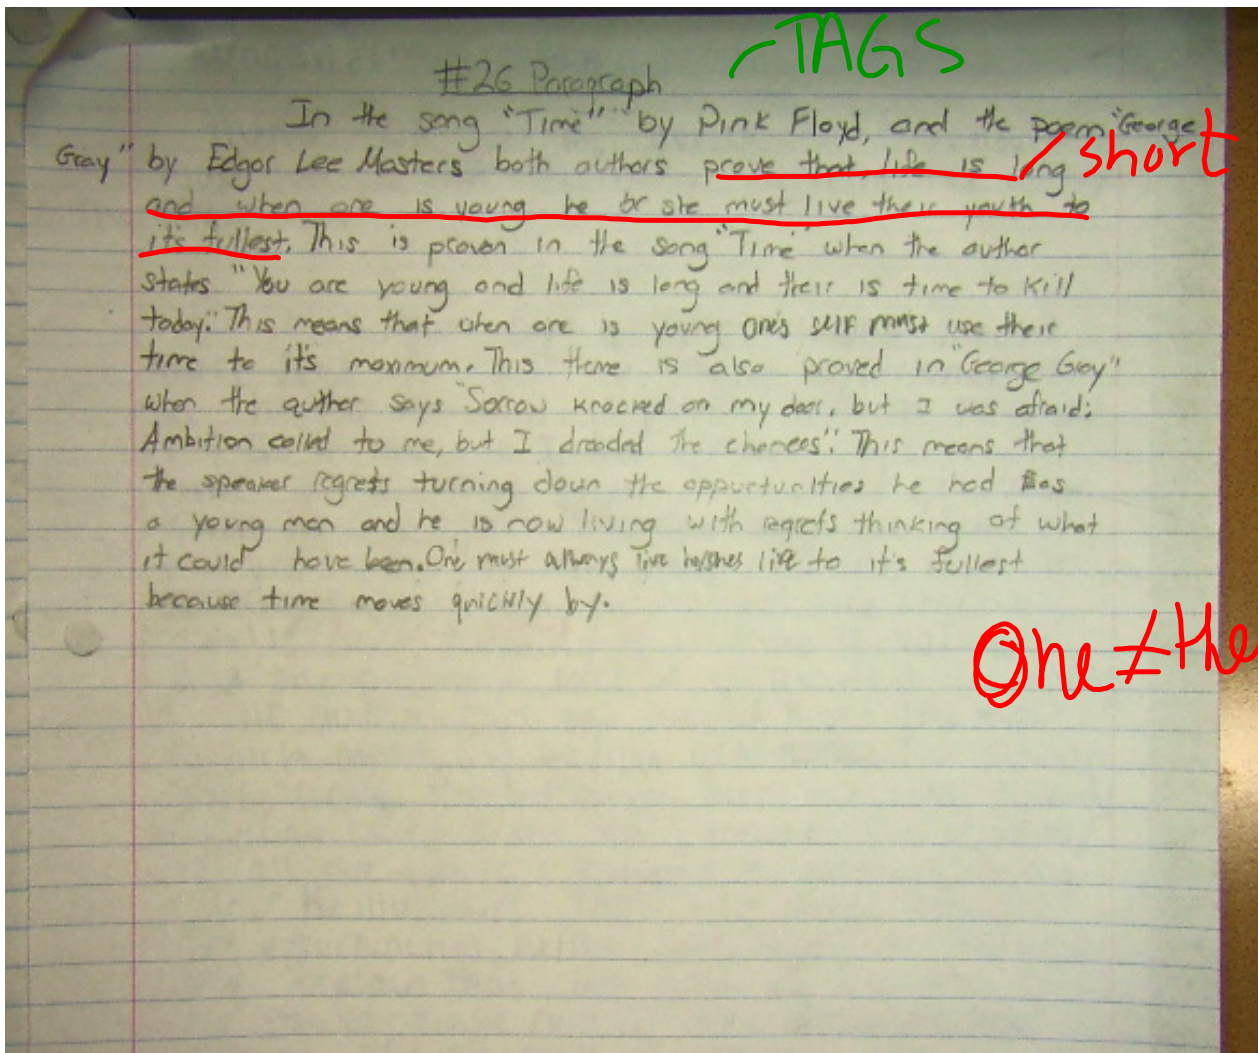 TAGS
#26 Paragraph
In the song "Time" by Pink Floyd, and the poem "George
Gray" by Edgar Lee Masters both authors prove that life is long
short
and when one is young he or she must live their youth to
it's fullest. This is proven in the song "Time" when the author
states "You are young and life is long and their is time to kill
today." This means that when one is young one's self must use their
time to it's maximum. This theme is also proved in "George Gray"
when the author says "Sorrow knocked on my door, but I was afraid;
Ambition called to me, but I dreaded the chances". This means that
the speaker regrets turning down the oppurtunities he had as
a young man and he is now living with regrets thinking of what
it could have been. One must always live his/hers life to it's fullest
because time moves quickly by.
One ≠ the